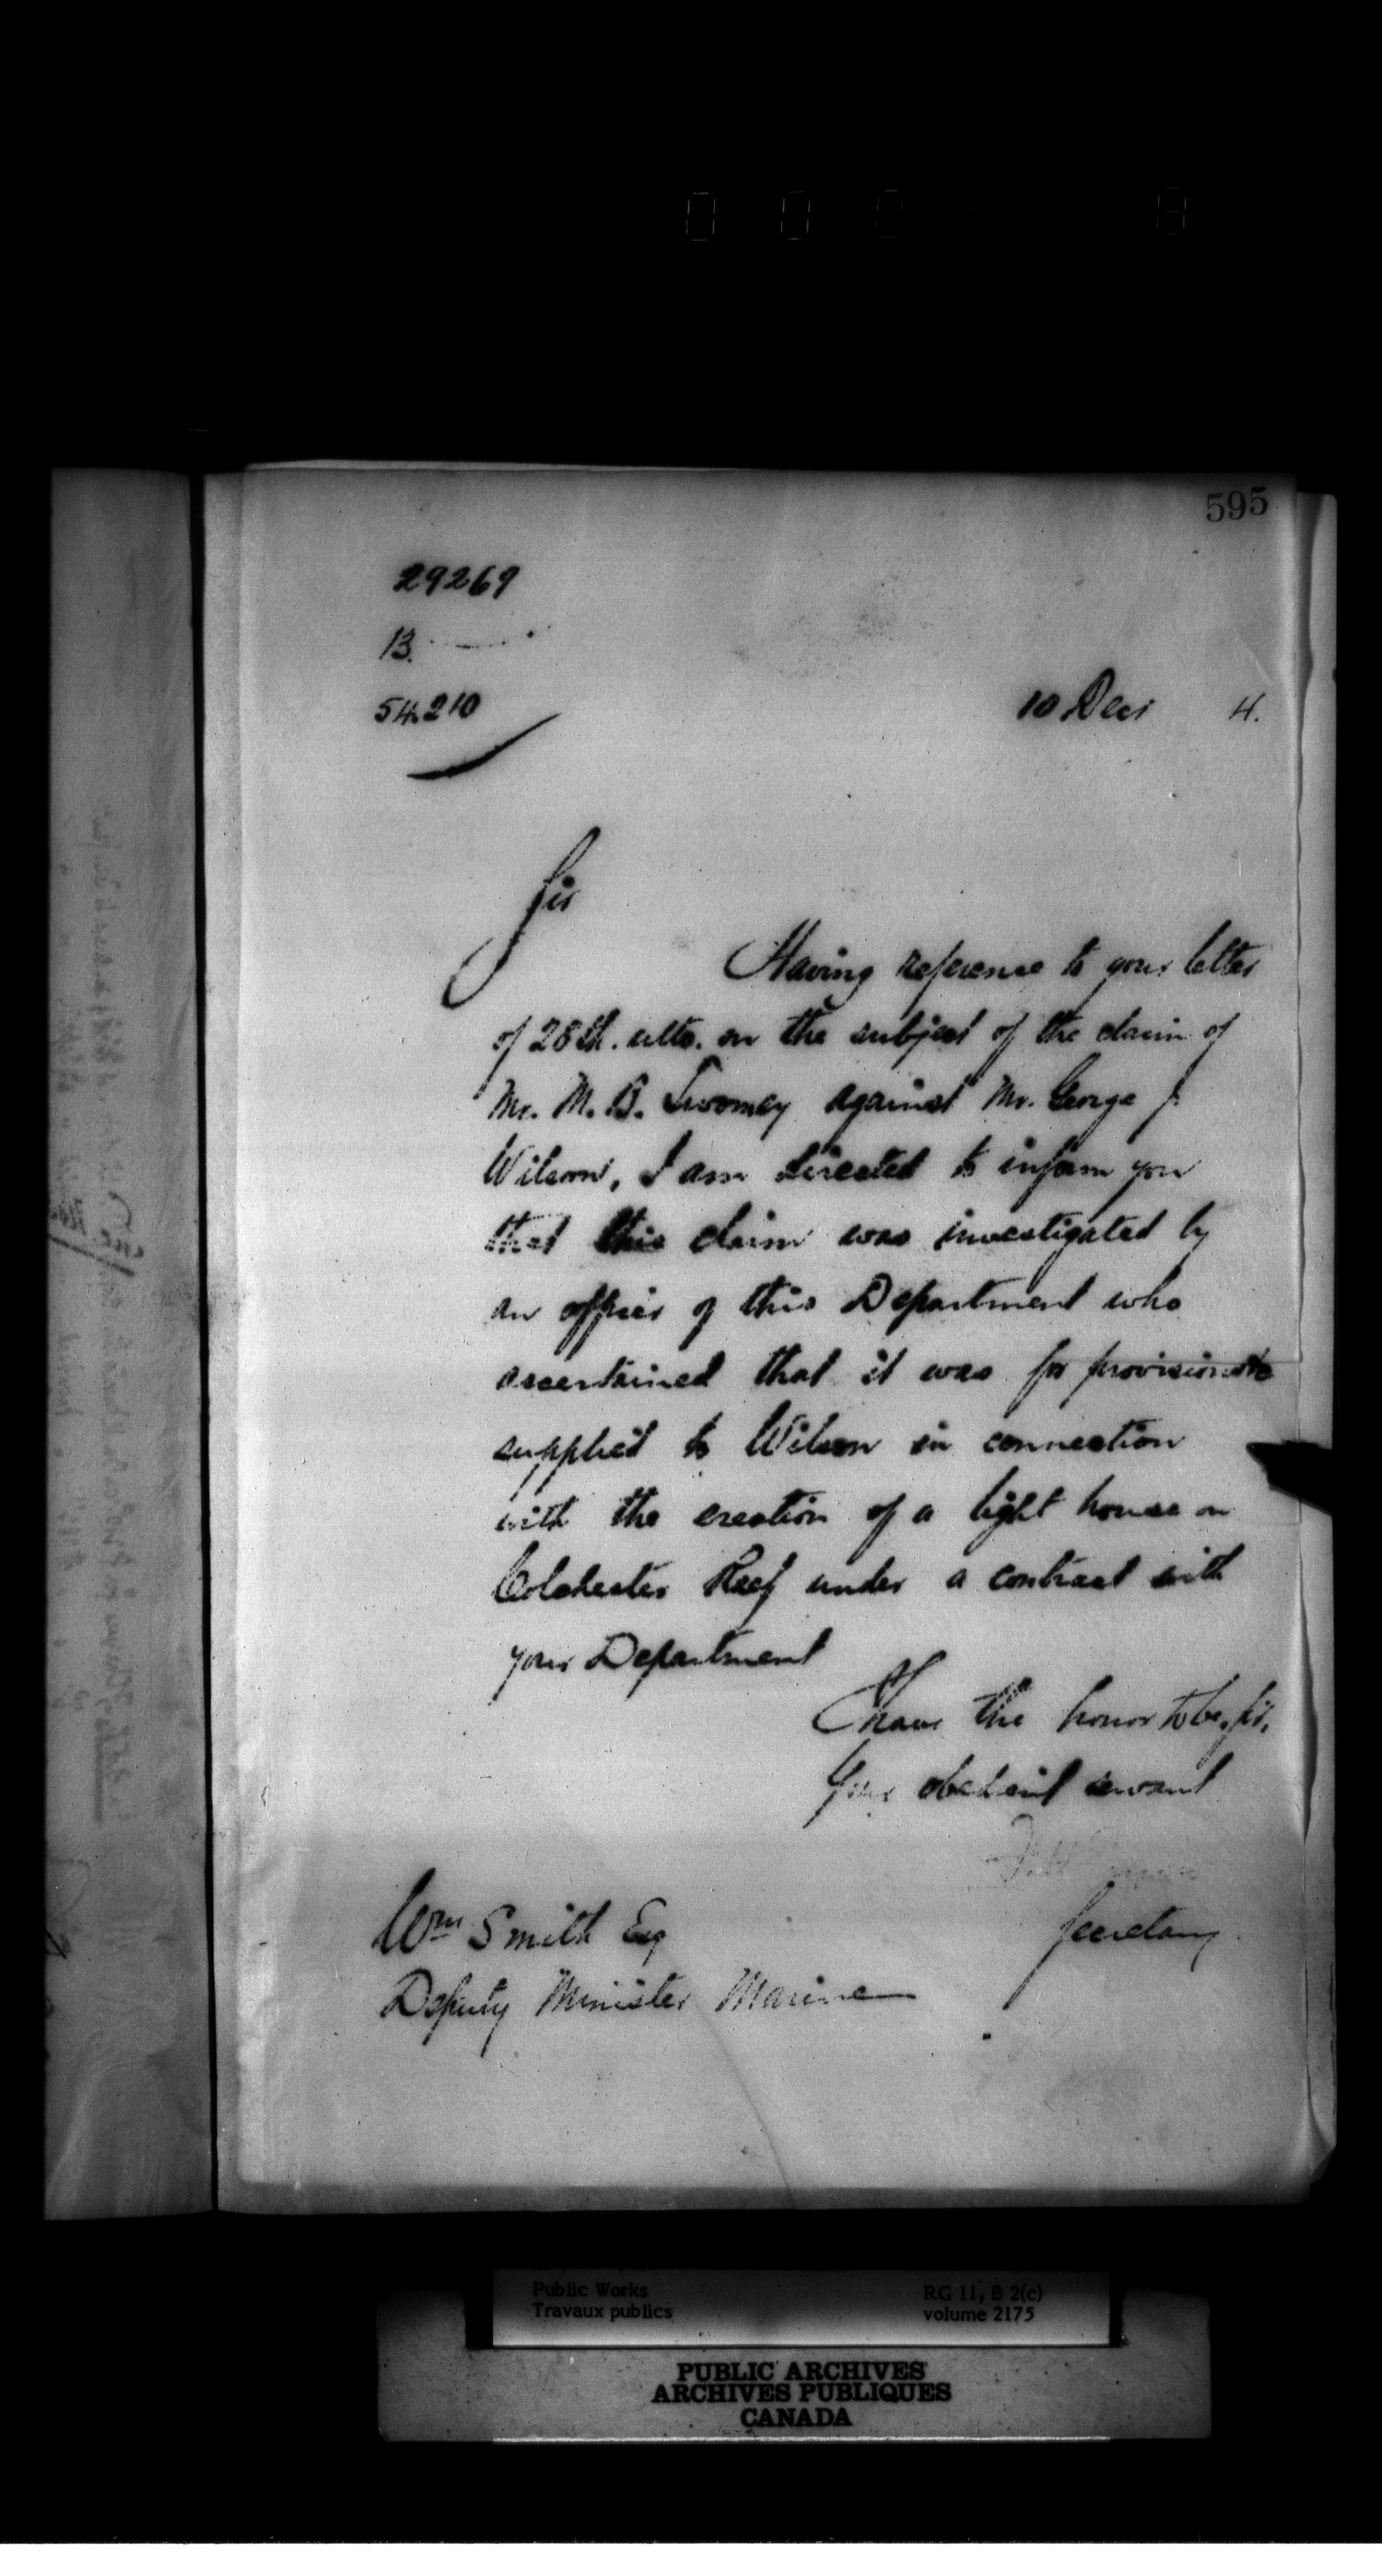 595
29269
B.
54210
10 Decr 4.
Sir
Having reference to your letter
of 28th. ulto. on the subject of the claim of
Mr. M. B. Twomey against Mr. George J.
Wilson, I am directed to inform you
that this claim was investigated by
an officer of this Department who
ascertained that it was for provisions &c
supplied to Wilson in connection
with the erection of a light house on
Colchester Reef under a contract with
your Department
I have the honor to be, Sir,
Your obedient servant
Secretary
Wm Smith Esq
Deputy Minister Marine
Public Works
Travaux publics
RG 11, B 2(c)
volume 2175
PUBLIC ARCHIVES
ARCHIVES PUBLIQUES
CANADA